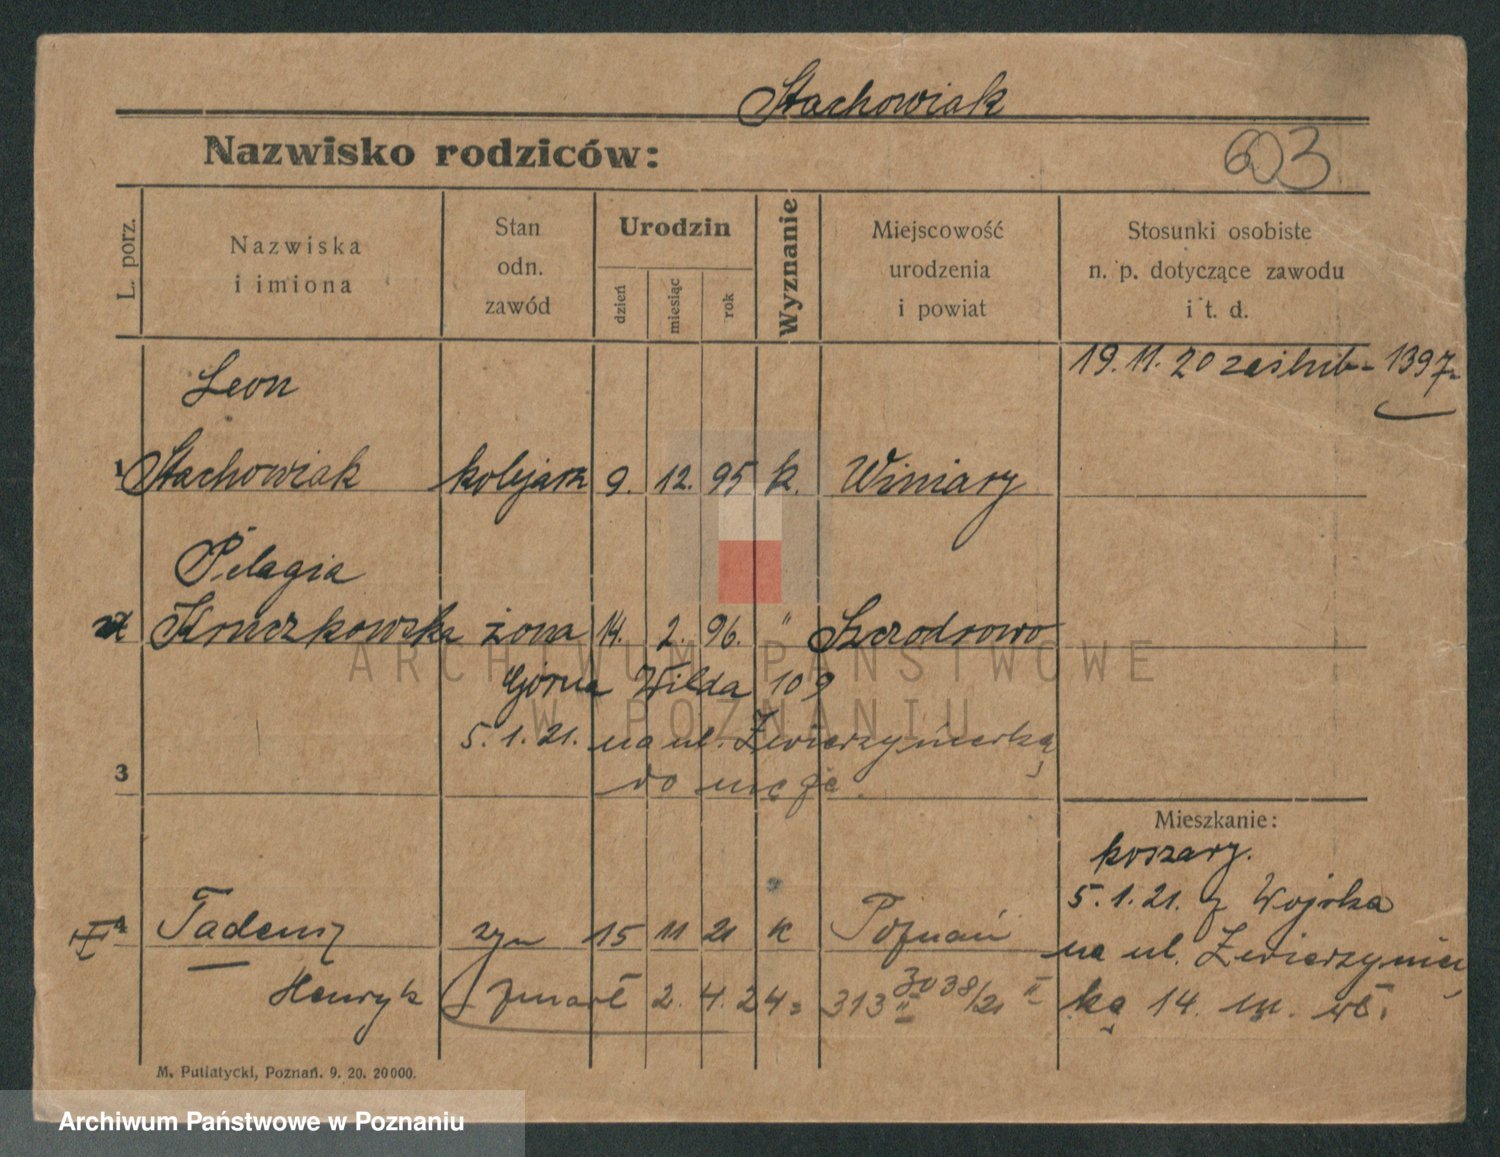 Stachowiak
Nazwisko rodziców:
603
L. porz.
Nazwiska
i imiona
Stan
odn.
zawód
Urodzin
dzień
miesiąc
rok
Wyznanie
Miejscowość
urodzenia
i powiat
Stosunki osobiste
n. p. dotyczące zawodu
i t. d.
19.11.20 zaślub- 1397-
Leon
1 Stachowiak kolejarz 9. 12. 95 k. Winiary
Pelagia
Kruczkowska żona 14. 2. 96. " Szczodrowo
Górna Wilda 109
5.1.21. na ul. Zwierzyniecką
do męża
3
Mieszkanie:
koszary.
5.1.21. z Wojska
na ul. Zwierzyniec
ką 14. m. wł.
4 Tadeusz syn 15 11 21 k Poznań
Henryk zmarł 2. 4. 24 = 313 II 3038/21 II
M. Putiatycki, Poznań. 9. 20. 20000.
ARCHIWUM PAŃSTWOWE
W POZNANIU
Archiwum Państwowe w Poznaniu